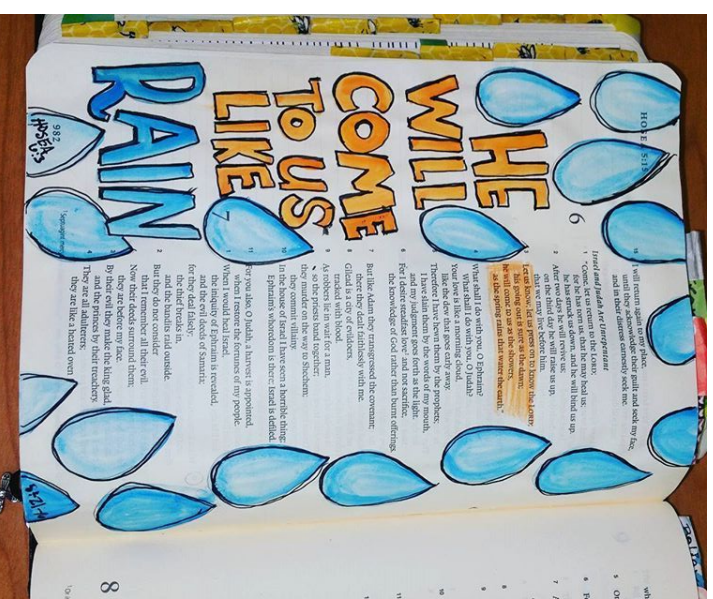 HOSEA 5:15
HE
WILL
COME
TO US
LIKE
RAIN
15 I will return again to my place,
until they acknowledge their guilt and seek my face,
and in their distress earnestly seek me.
Israel and Judah Are Unrepentant
6
1 "Come, let us return to the LORD;
for he has torn us, that he may heal us;
he has struck us down, and he will bind us up.
2 After two days he will revive us;
on the third day he will raise us up,
that we may live before him.
3 Let us know; let us press on to know the LORD;
his going out is sure as the dawn;
he will come to us as the showers,
as the spring rains that water the earth."
4 What shall I do with you, O Ephraim?
What shall I do with you, O Judah?
Your love is like a morning cloud,
like the dew that goes early away.
5 Therefore I have hewn them by the prophets;
I have slain them by the words of my mouth,
and my judgment goes forth as the light.
6 For I desire steadfast love and not sacrifice,
the knowledge of God rather than burnt offerings.
7 But like Adam they transgressed the covenant;
there they dealt faithlessly with me.
8 Gilead is a city of evildoers,
tracked with blood.
9 As robbers lie in wait for a man,
so the priests band together;
they murder on the way to Shechem;
they commit villainy.
10 In the house of Israel I have seen a horrible thing;
Ephraim's whoredom is there; Israel is defiled.
11 For you also, O Judah, a harvest is appointed,
when I restore the fortunes of my people.
7
1 When I would heal Israel,
the iniquity of Ephraim is revealed,
and the evil deeds of Samaria;
for they deal falsely;
the thief breaks in,
and the bandits raid outside.
2 But they do not consider
that I remember all their evil.
Now their deeds surround them;
they are before my face.
3 By their evil they make the king glad,
and the princes by their treachery.
4 They are all adulterers;
they are like a heated oven
982
HOSEA
6:3
8